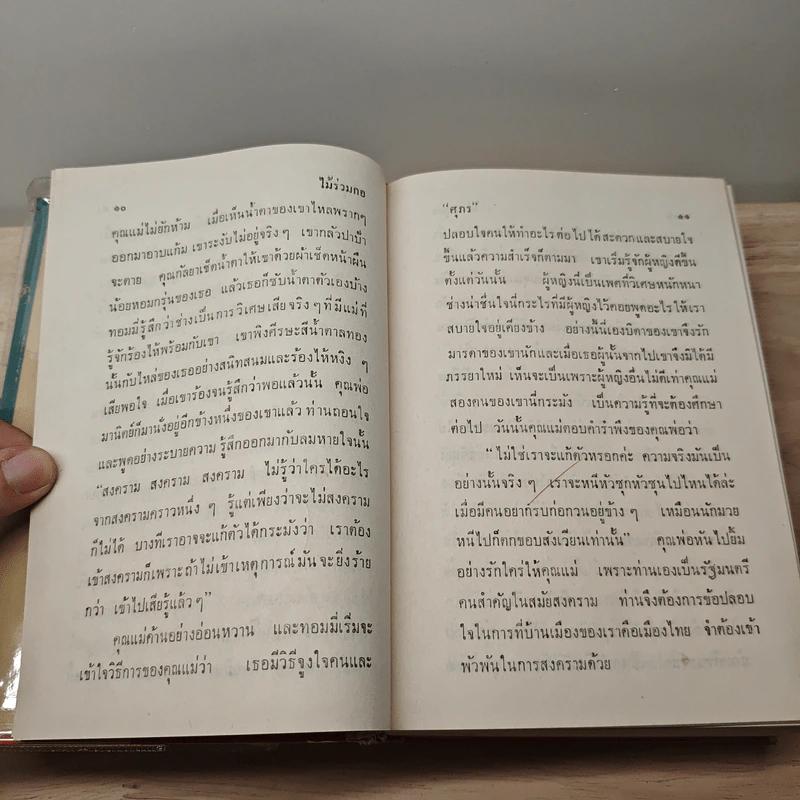 ๑๐
ไม้ร่วมกอ
คุณแม่ไม่ยักห้าม เมื่อเห็นน้ำตาของเขาไหลพรากๆ
ออกมาอาบแก้ม เขาระงับไม่อยู่จริงๆ เขากลัวปาป๊า
จะตาย คุณกัลยาเช็ดน้ำตาให้เขาด้วยผ้าเช็ดหน้าผืน
น้อยหอมกรุ่นของเธอ แล้วเธอก็ซับน้ำตาตัวเองบ้าง
ทอมมี่รู้สึกว่าช่างเป็นการวิเศษเสียจริงๆ ที่มีแม่ที่
รู้จักร้องไห้พร้อมกับเขา เขาพิงศีรษะสีน้ำตาลทอง
นั้นกับไหล่ของเธออย่างสนิทสนมและร้องไห้หงิง ๆ
เสียพอใจ เมื่อเขาร้องจนรู้สึกว่าพอแล้วนั้น คุณพ่อ
มานิตย์ก็มานั่งอยู่อีกข้างหนึ่งของเขาแล้ว ท่านถอนใจ
และพูดอย่างระบายความรู้สึกออกมากับลมหายใจนั้น
“สงคราม สงคราม สงคราม ไม่รู้ว่าใครได้อะไร
จากสงครามคราวหนึ่ง ๆ รู้แต่เพียงว่าจะไม่สงคราม
ก็ไม่ได้ บางทีเราอาจจะแก้ตัวได้กระมังว่า เราต้อง
เข้าสงครามก็เพราะถ้าไม่เข้าเหตุการณ์มันจะยิ่งร้าย
กว่า เข้าไปเสียรู้แล้วๆ”
คุณแม่ค้านอย่างอ่อนหวาน และทอมมี่เริ่มจะ
เข้าใจวิธีการของคุณแม่ว่า เธอมีวิธีจูงใจคนและ
“ศุภร”
๑๑
ปลอบใจคนให้ทำอะไรต่อไปได้สะดวกและสบายใจ
ขึ้นแล้วความสำเร็จก็ตามมา เขาเริ่มรู้จักผู้หญิงดีขึ้น
ตั้งแต่วันนั้น ผู้หญิงนี่เป็นเพศที่วิเศษหนักหนา
ช่างน่าชื่นใจนี่กระไรที่มีผู้หญิงไว้คอยพูดอะไรให้เรา
สบายใจอยู่เคียงข้าง อย่างนี้นี่เองบิดาของเขาจึงรัก
มารดาของเขานักและเมื่อเธอผู้นั้นจากไปเขาจึงมิได้มี
ภรรยาใหม่ เห็นจะเป็นเพราะผู้หญิงอื่นไม่ดีเท่าคุณแม่
สองคนของเขานี่กระมัง เป็นความรู้ที่จะต้องศึกษา
ต่อไป วันนั้นคุณแม่ตอบคำรำพึงของคุณพ่อว่า
“ไม่ใช่เราจะแก้ตัวหรอกค่ะ ความจริงมันเป็น
อย่างนั้นจริง ๆ เราจะหนีหัวซุกหัวซุนไปไหนได้ล่ะ
เมื่อมีคนอยากรบก่อกวนอยู่ข้าง ๆ เหมือนนักมวย
หนีไปก็ตกขอบสังเวียนเท่านั้น” คุณพ่อหันไปยิ้ม
อย่างรักใคร่ให้คุณแม่ เพราะท่านเองเป็นรัฐมนตรี
คนสำคัญในสมัยสงคราม ท่านจึงต้องการข้อปลอบ
ใจในการที่บ้านเมืองของเราคือเมืองไทย จำต้องเข้า
พัวพันในการสงครามด้วย